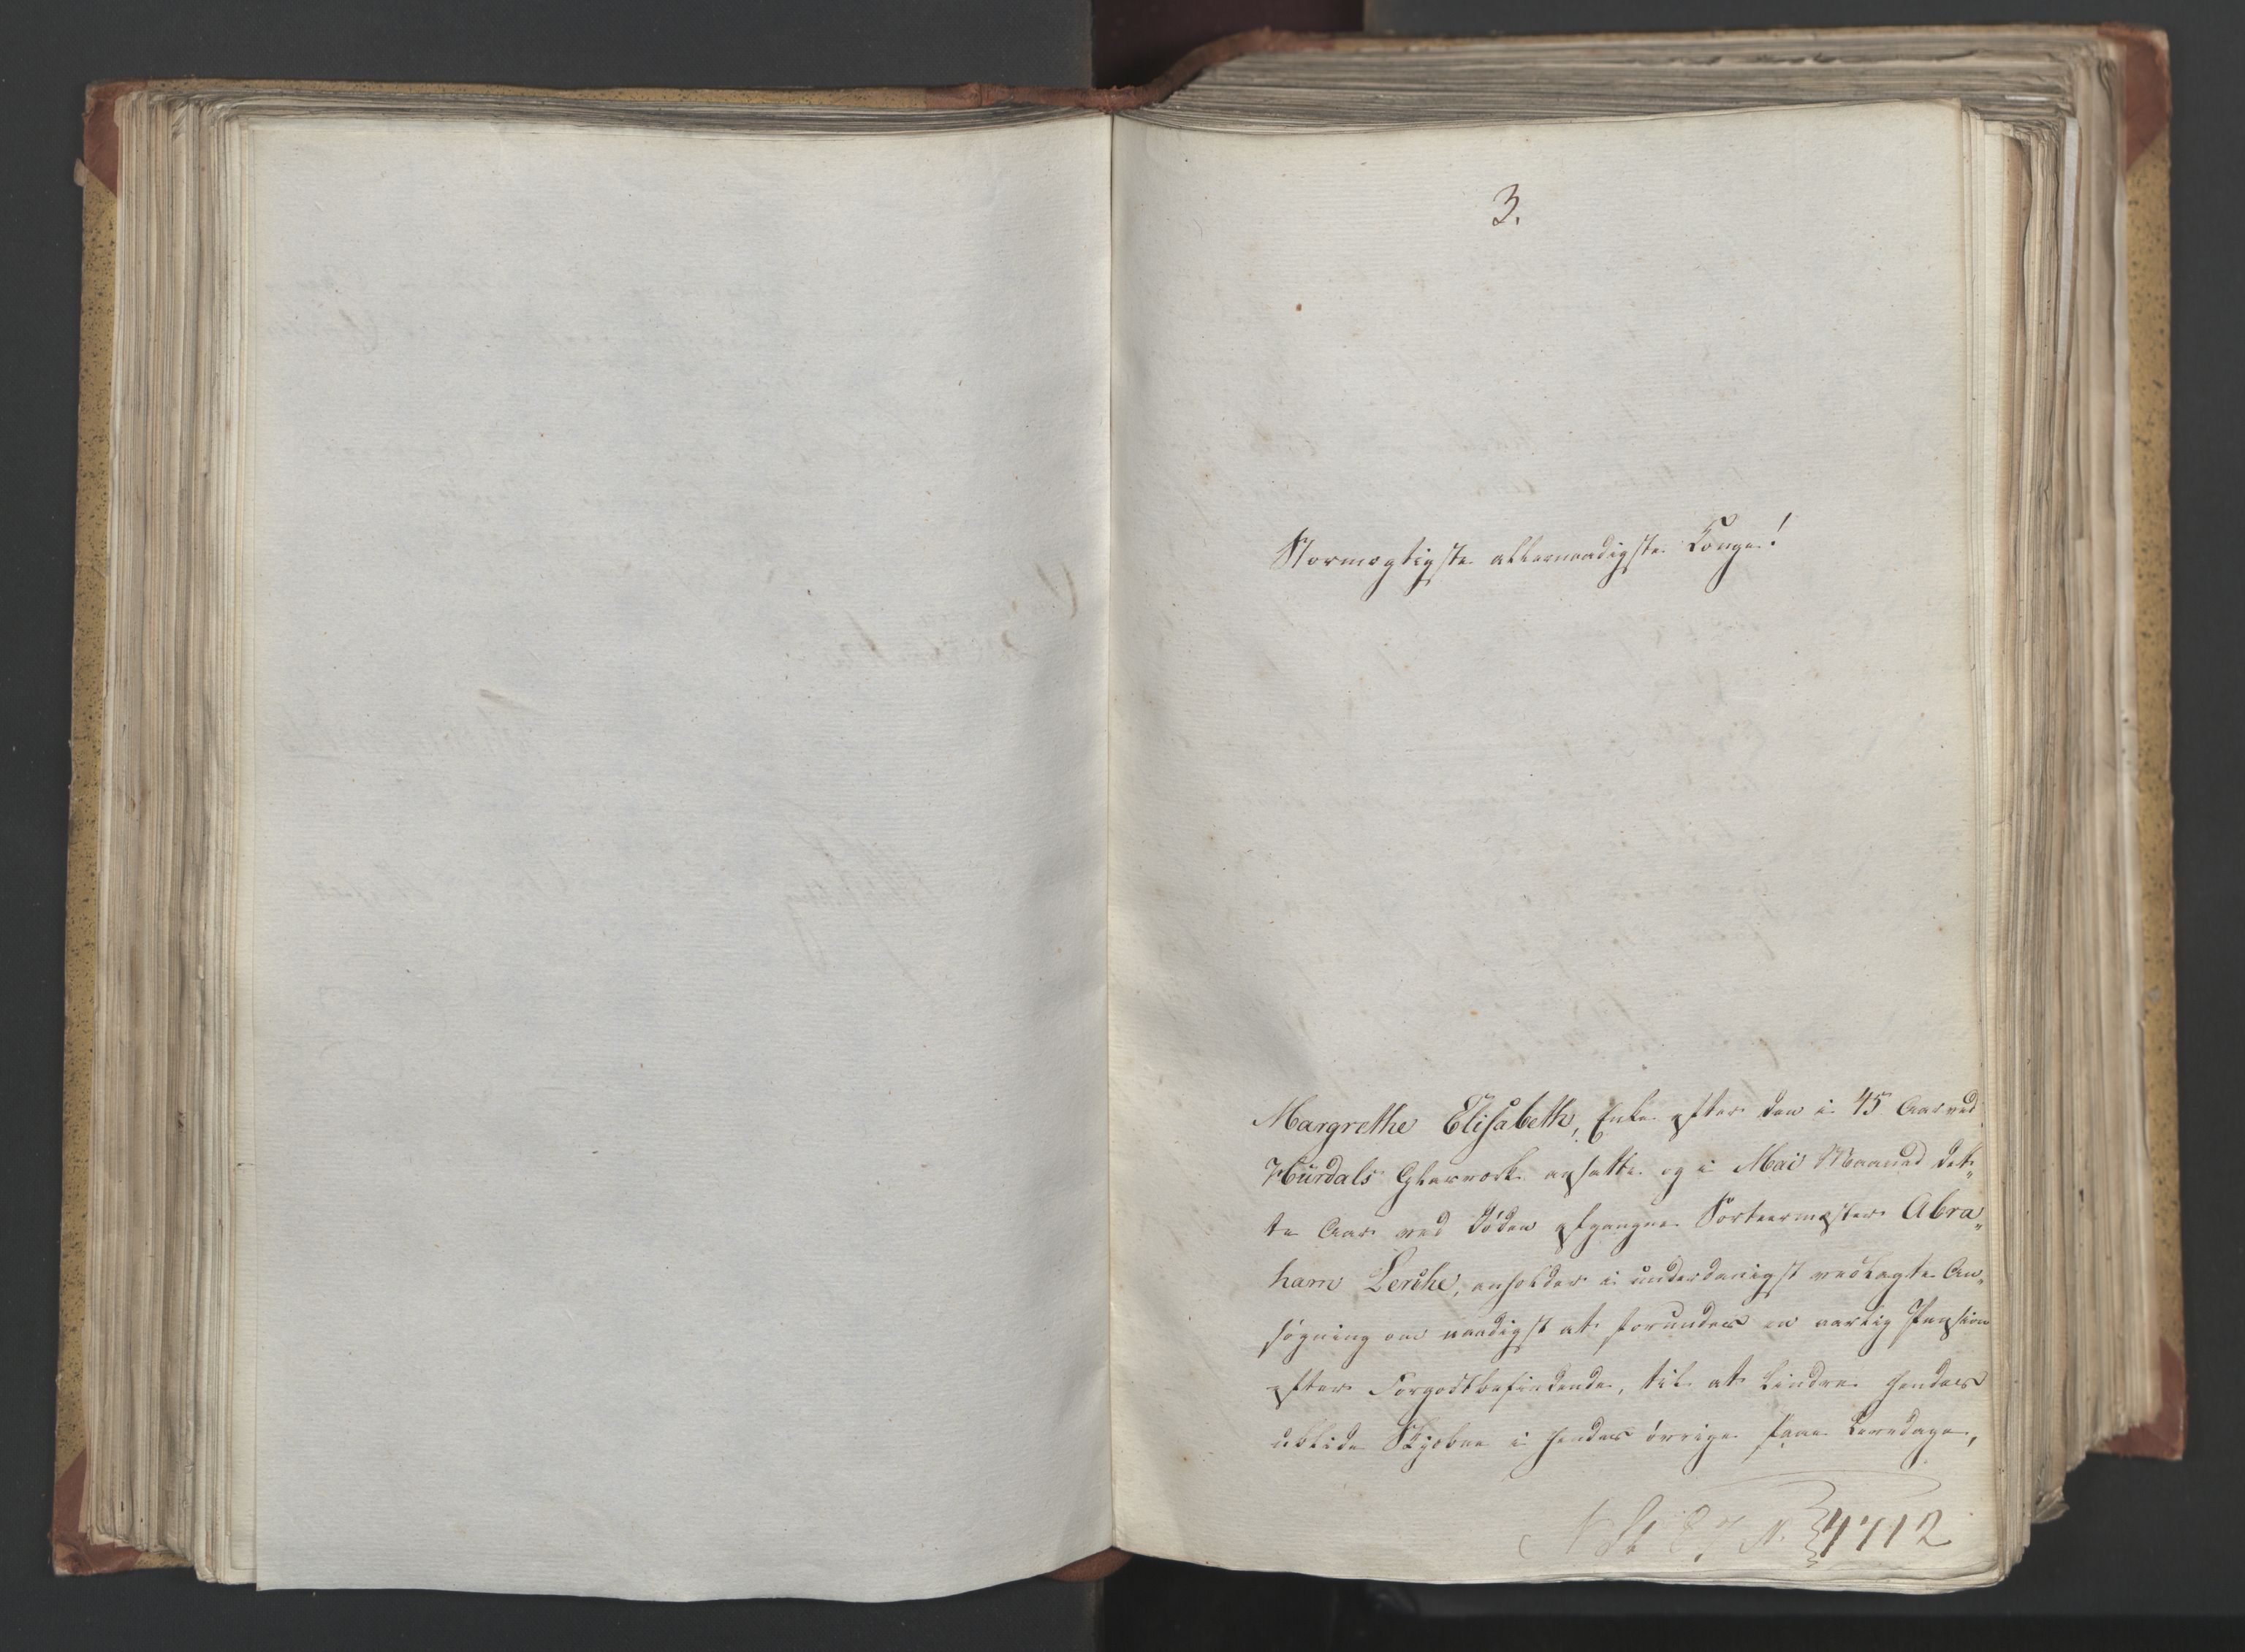 3.
Stormægtigste allernaadigste Konge!
Margrethe Elisabeth, Enke efter den i 45 Aar ved
Hurdals Glasværk ansatte og i Mai Maaned det„
te Aar ved Döden afgangne Sorteermester Abra„
ham Lerche, anholder i underdanigst vedlagte An„
søgning om naadigst at forundes en aarlig Pension
efter Forgodtbefindende, til at lindre hendes
ublide Skjebne i hendes övrige faae Levedage,
4712